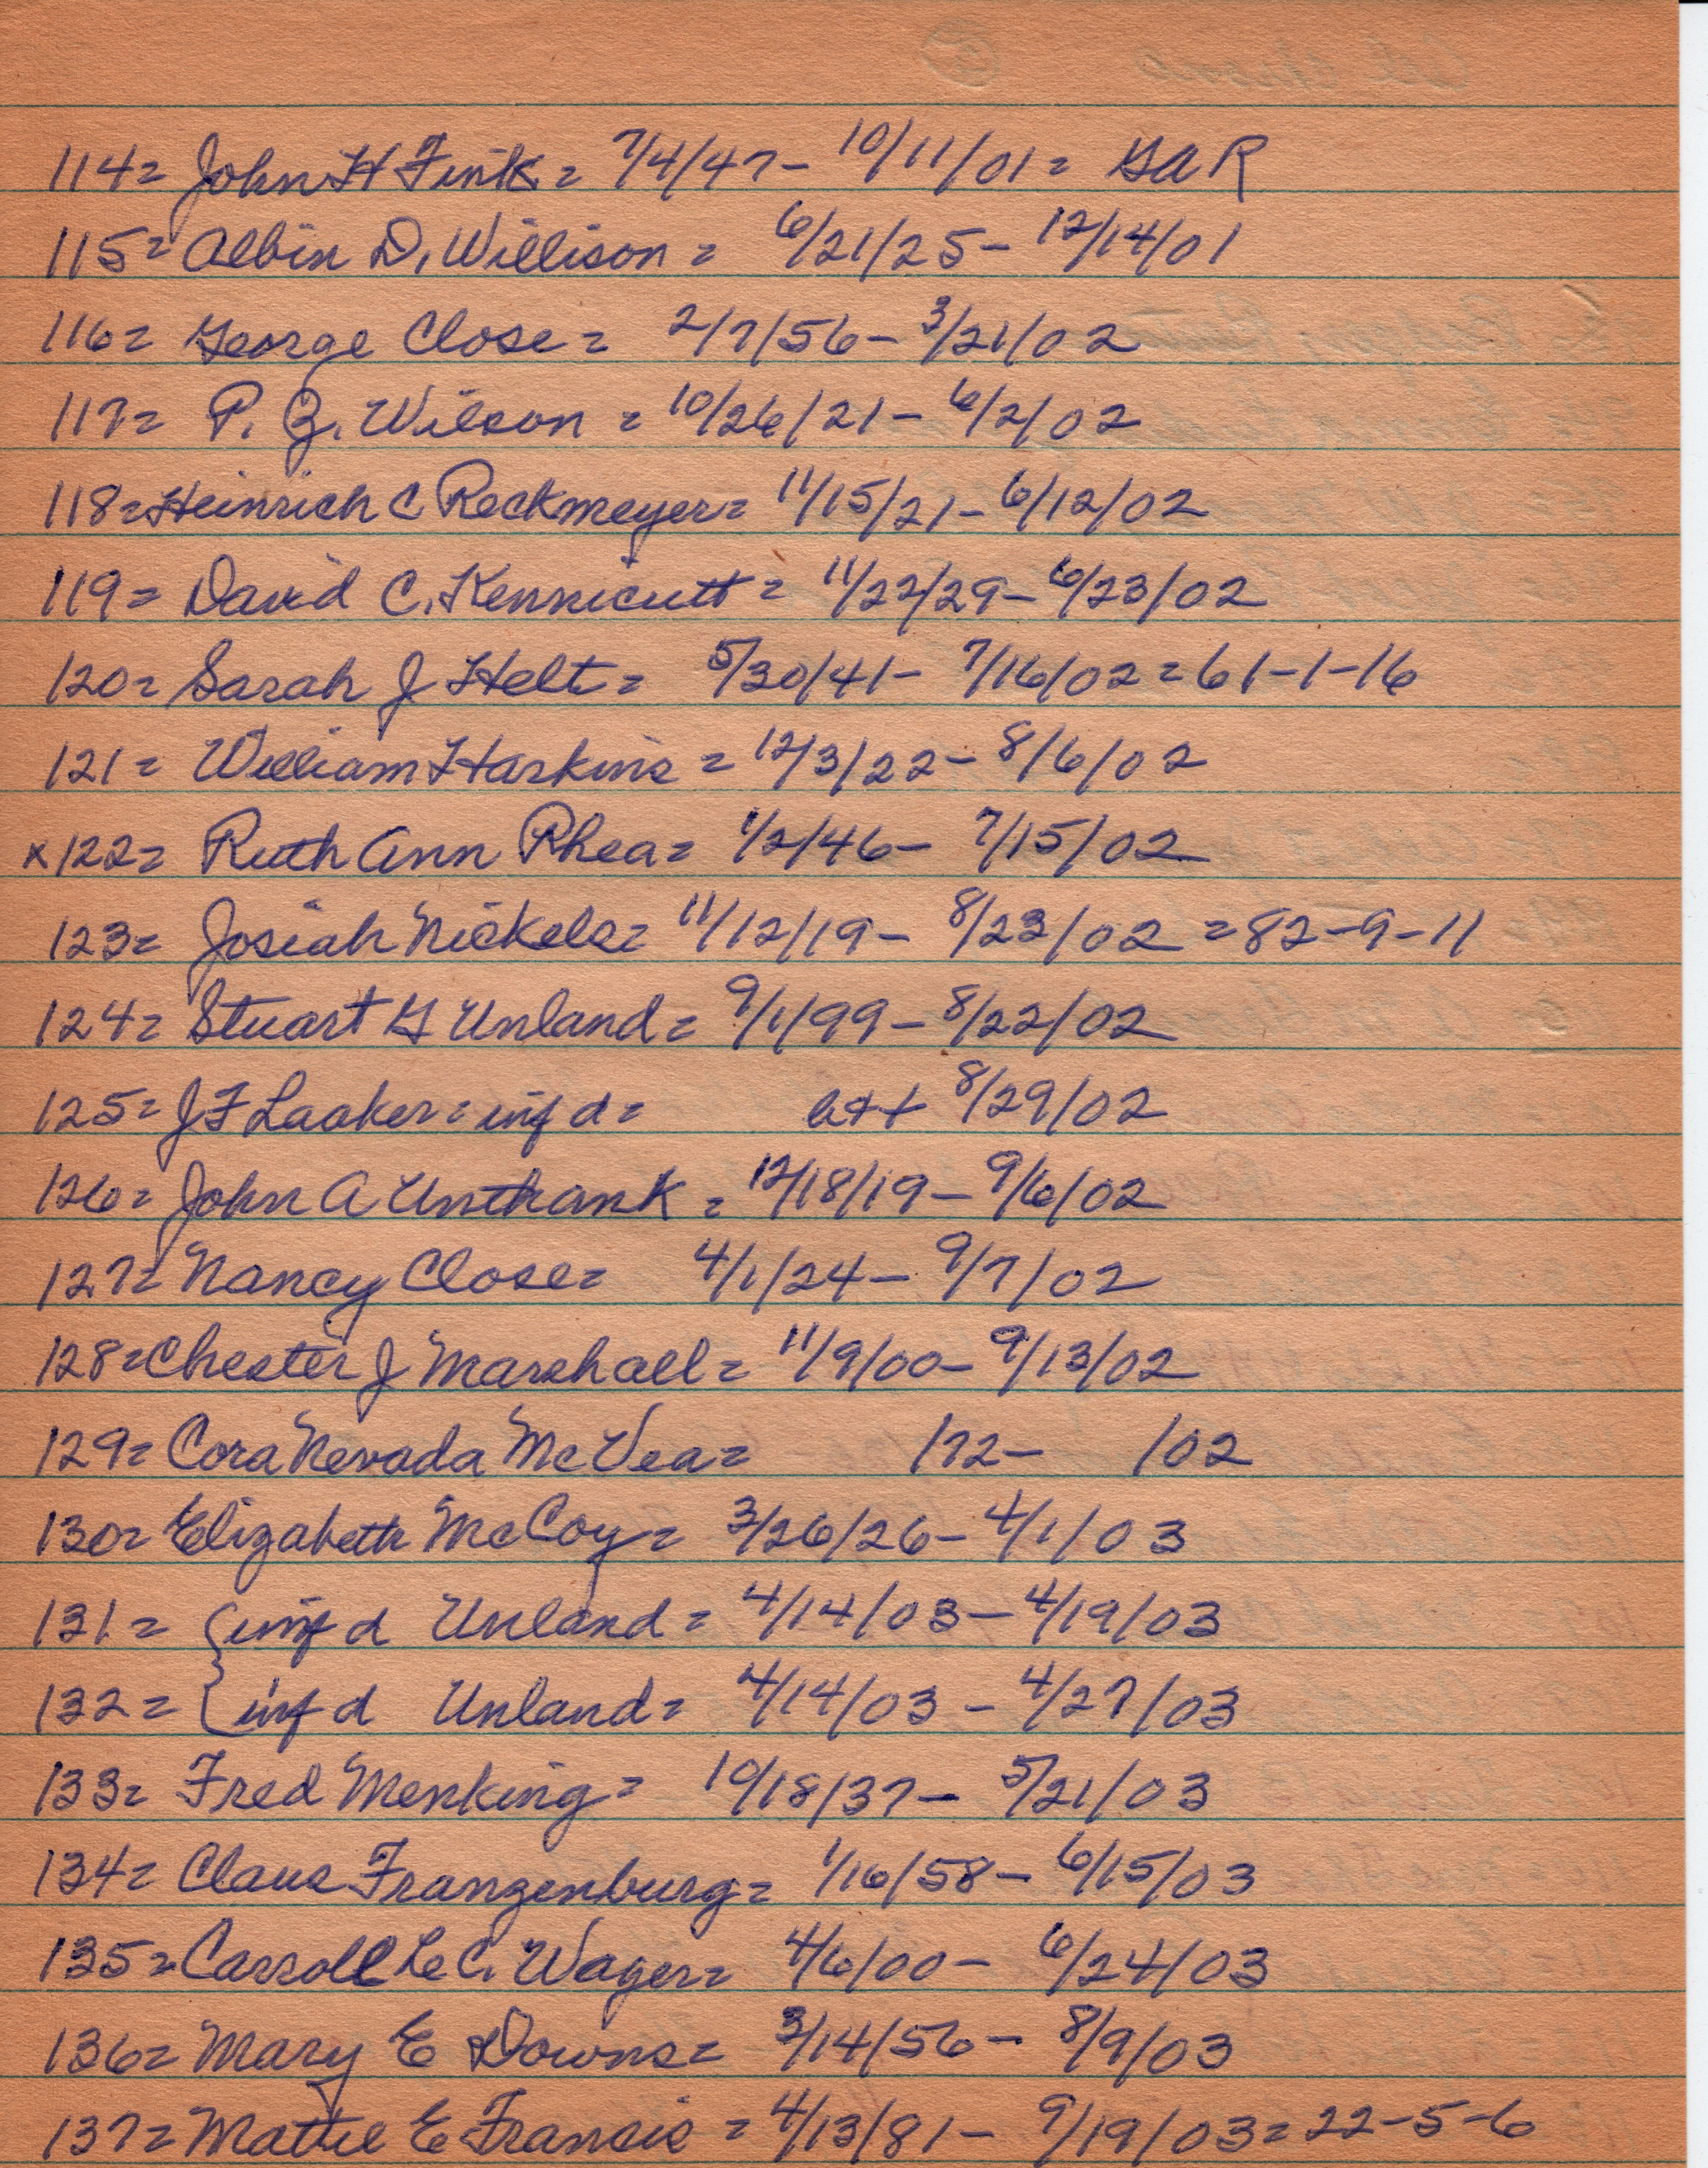 114= John H Fink = 7/4/47- 10/11/01 = GAR
115= Albin D. Willison = 6/21/25 - 12/14/01
116= George Close = 2/7/56 - 3/21/02
117= P. Z. Wilson = 10/26/21 - 6/2/02
118= Heinrich C Reckmeyer = 11/15/21 - 6/12/02
119= David C. Kennicutt = 11/22/29 - 6/23/02
120= Sarah J Helt = 5/30/41 - 7/16/02 = 61-1-16
121= William Harkins = 12/3/22 - 8/6/02
x122= Ruth Ann Rhea = 1/2/46 - 7/15/02
123= Josiah Nickels = 11/12/19 - 8/23/02 = 82-9-11
124= Stuart G Unland = 9/1/99 - 8/22/02
125= J F Laaker = inf d = 8/29/02
126= John A Unthank = 12/18/19 - 9/6/02
127= Nancy Close = 4/1/24 - 9/7/02
128= Chester J Marshall = 11/9/00 - 9/13/02
129= Cora Nevada McVea = /72 - /02
130= Elizabeth McCoy = 3/26/26 - 4/1/03
131= { inf d Unland = 4/14/03 - 4/19/03
132= { inf d Unland = 4/14/03 - 4/27/03
133= Fred Menking = 10/18/37 - 5/21/03
134= Claus Franzenburg = 1/16/58 - 6/15/03
135= Carroll Le C. Wager = 4/6/00 - 6/24/03
136= Mary E Downs = 3/14/56 - 8/9/03
137= Mattie E Francis = 4/13/81 - 9/19/03 = 22-5-6